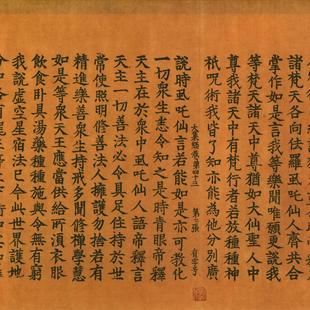 諸梵天各向佉羅虱吒仙人齊共合
掌作如是言我等樂聞唯願更說我
等梵天諸天中尊猶如大仙聖人中
尊我諸天中有梵行者若放種種神
祇呪術我皆了知亦能為他分別廣
大集經卷第四十三 第十張 有字号
說時虱吒仙言若能如是亦可教化
一切衆生悉令知之是時青眼帝釋
天主在於衆中虱吒仙人語帝釋言
天主一切善法必令具足住持於世
常使照明修善法人擁護勿捨若有
精進樂善堅持戒多聞修禪學慧
如是等衆天王應當供給所湏衣服
飲食卧具湯藥種種施與令無有窮
我說虛空星宿法已今此世界護地